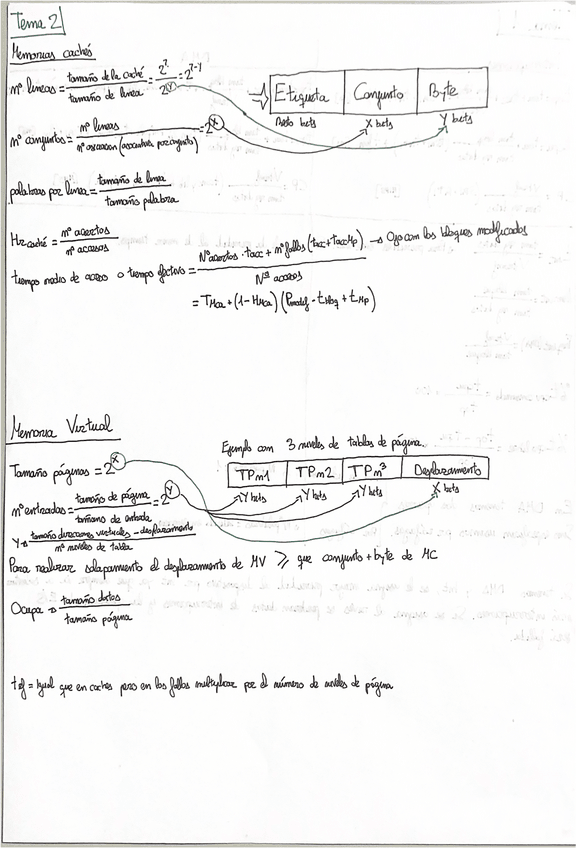 Tema 2
Memorias cachés
nº lineas = tamaño de la caché / tamaño de linea = 2^? / 2^Y = 2^?-Y
Etiqueta | Conjunto | Byte
Resto bits X bits Y bits
nº conjuntos = nº lineas / nº asociacion (asociativa por conjunto) = 2^X
palabras por linea = tamaño de linea / tamaño palabra
Hr caché = nº aciertos / nº accesos
tiempo medio de acceso o tiempo efectivo = Nº aciertos · tacc + nº fallos (tacc + taccMp) / Nº accesos → Ojo con los bloques modificados
= TMca + (1 - HMca) (Pmodif · tbloq + tMp)
Memoria Virtual
Ejemplo con 3 niveles de tablas de página.
Tamaño páginas = 2^X
TPn1 | TPn2 | TPn3 | Desplazamiento
Y bits Y bits Y bits X bits
nº entradas = tamaño de página / tamaño de entrada = 2^Y
Y = tamaño direcciones virtuales - desplazamiento / nº niveles de tabla
Para realizar solapamiento el desplazamiento de MV ≥ que conjunto + byte de MC
Ocupa = tamaño datos / tamaño página
tef = Igual que en cachés pero en los fallos multiplicar por el número de niveles de página